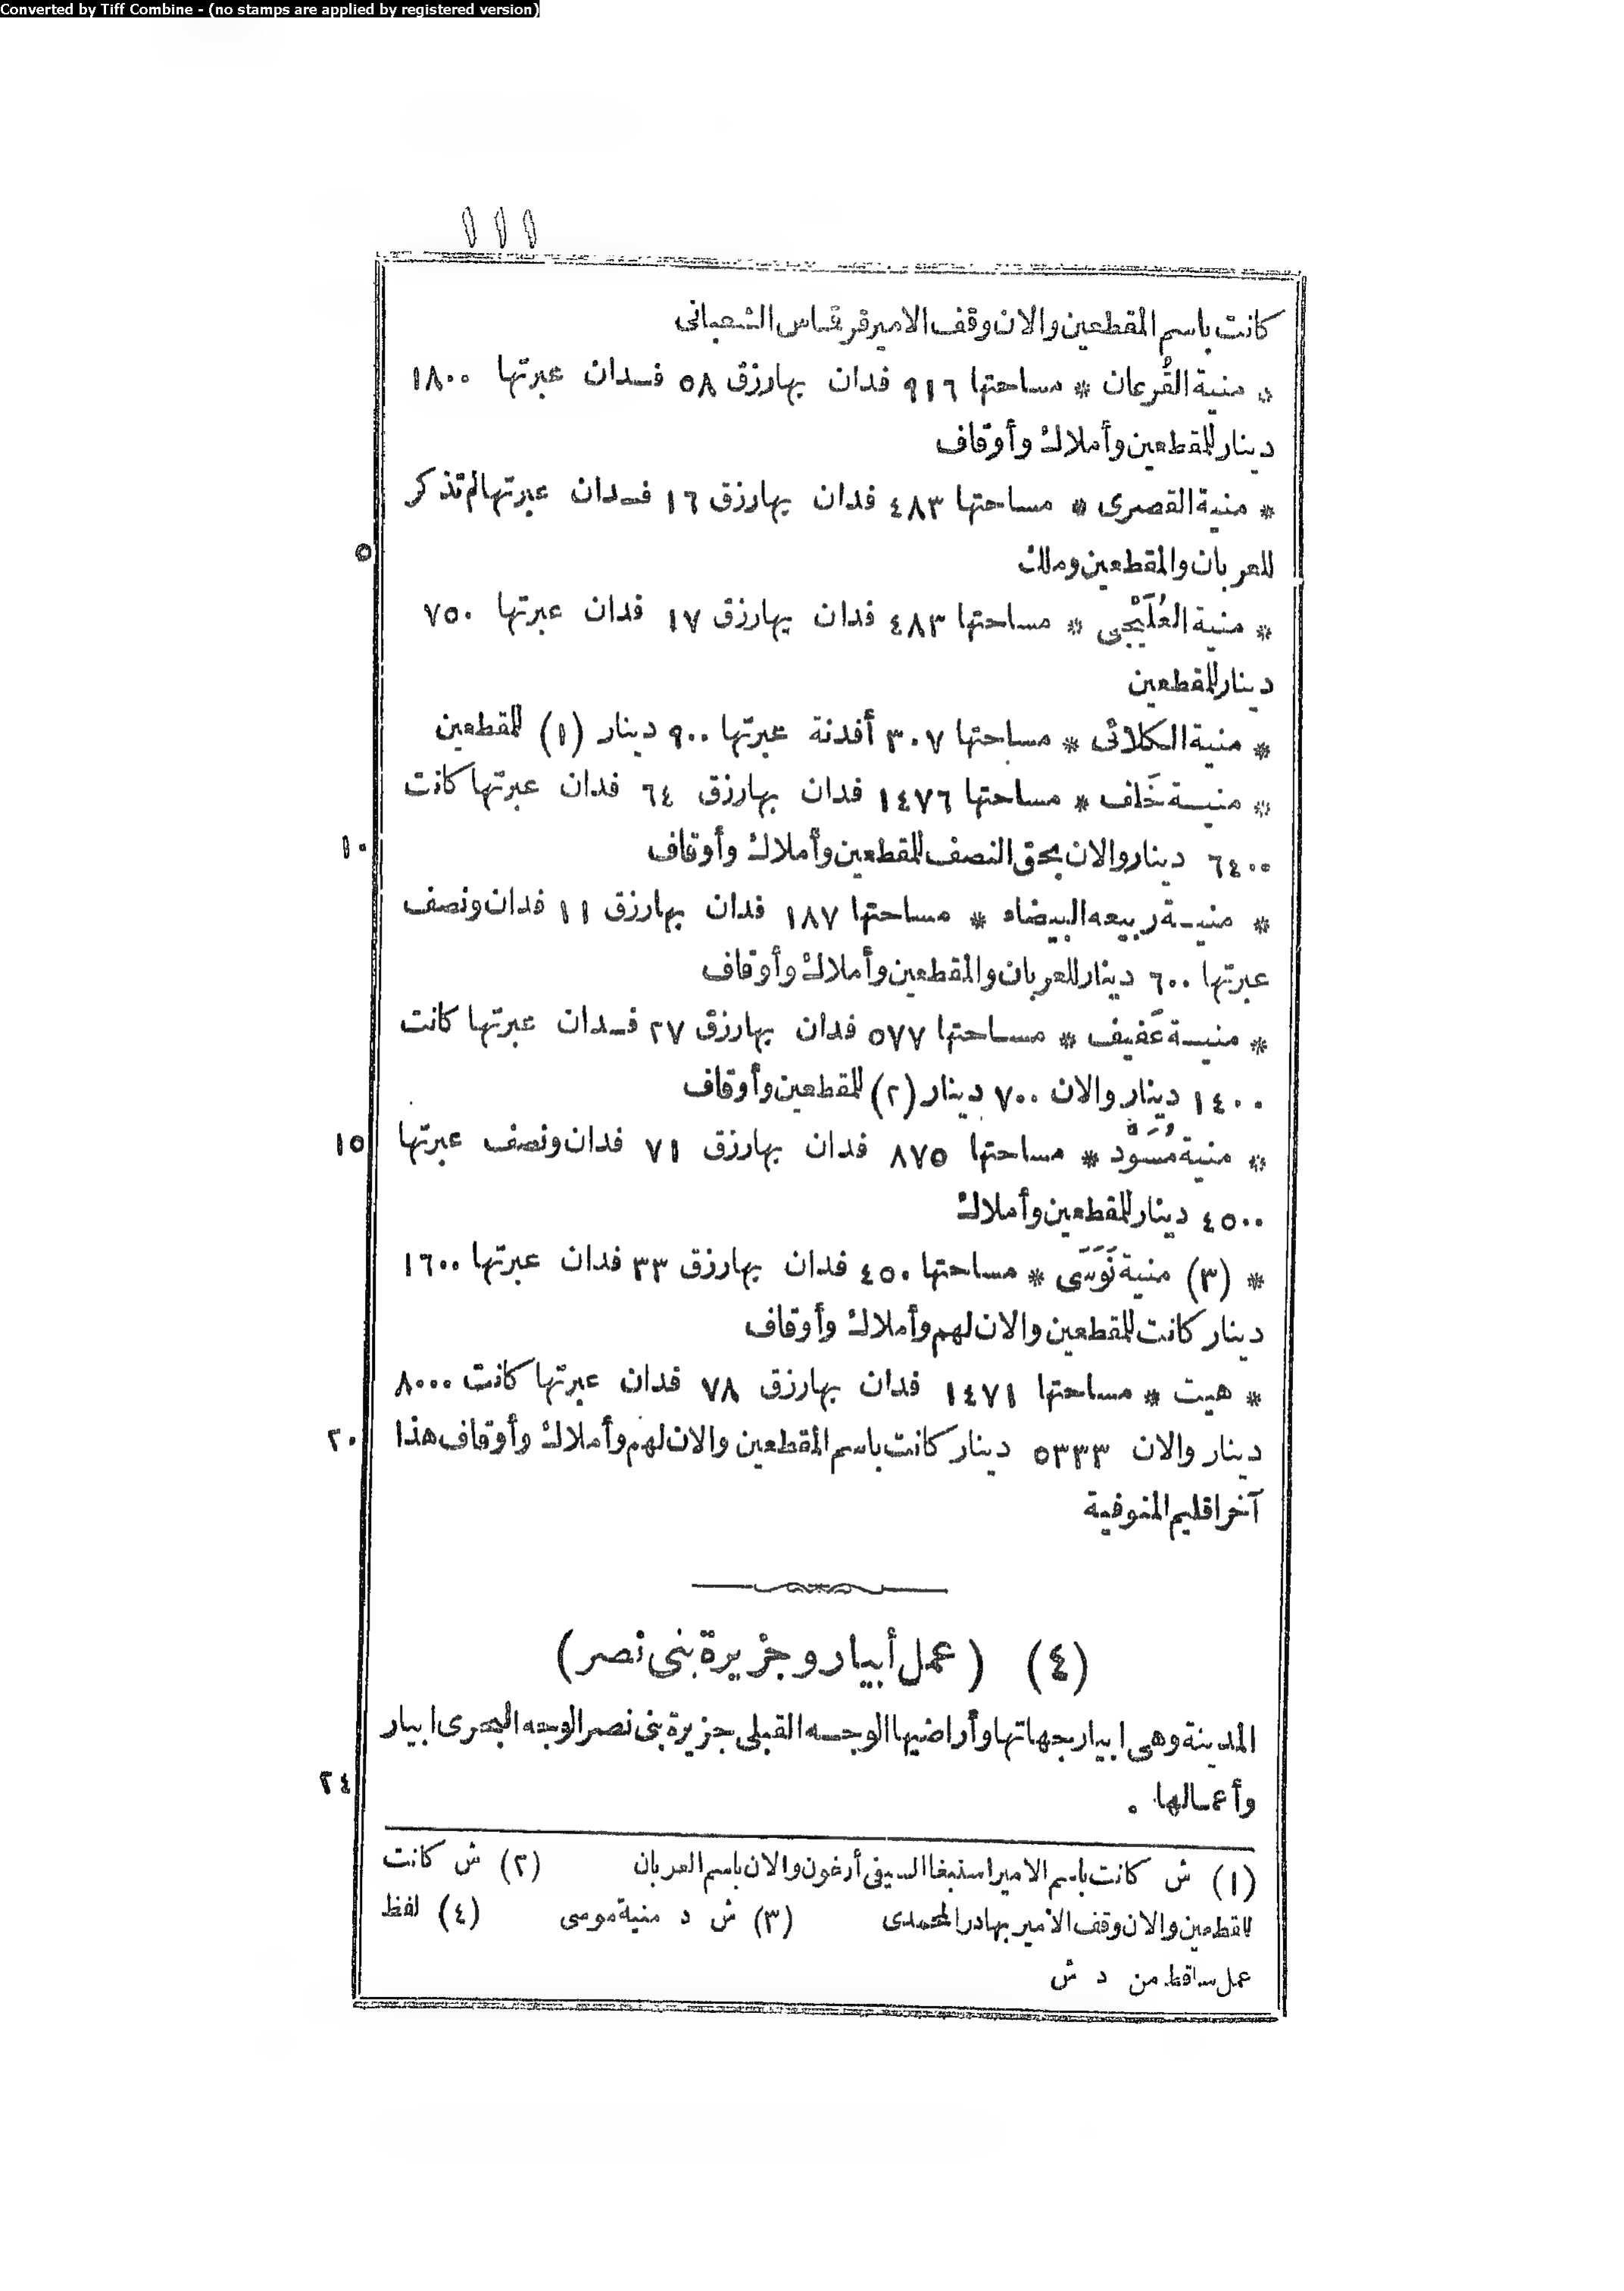 Converted by Tiff Combine - (no stamps are applied by registered version)
١١١
كانت باسم المقطعين والان وقف الامير قرقماس الشعبانى
* منية القُرعان * مساحتها ٩١٦ فدان بها رزق ٥٨ فـدان عبرتها ١٨٠٠
دينار للمقطعين وأملاك وأوقاف
* منية القصرى * مساحتها ٤٨٣ فدان بها رزق ١٦ فـدان عبرتها لم تذكر
٥ للعربان والمقطعين وملك
* منية العُلَيْجى * مساحتها ٤٨٣ فدان بها رزق ١٧ فدان عبرتها ٧٥٠
دينار للمقطعين
* منية الكلائى * مساحتها ٣٠٧ أفدنة عبرتها ٩٠٠ دينار (١) للمقطعين
* منيـة خَلف * مساحتها ١٤٧٦ فدان بها رزق ٦٤ فدان عبرتها كانت
١٠ ٦٤٠٠ دينار والان بحق النصف للمقطعين وأملاك وأوقاف
* منيـة ربيعه البيضاء * مساحتها ١٨٧ فدان بها رزق ١١ فدان ونصف
عبرتها ٦٠٠ دينار للعربان والمقطعين وأملاك وأوقاف
* منيـة عَفيف * مساحتها ٥٧٧ فدان بها رزق ٢٧ فـدان عبرتها كانت
١٤٠٠ دينار والان ٧٠٠ دينار (٢) للمقطعين وأوقاف
١٥ * منية مُسَوَّد * مساحتها ٨٧٥ فدان بها رزق ٧١ فدان ونصف عبرتها
٤٥٠٠ دينار للمقطعين وأملاك
* (٣) منية نَوَسَى * مساحتها ٤٥٠ فدان بها رزق ٣٣ فدان عبرتها ١٦٠٠
دينار كانت للمقطعين والان لهم وأملاك وأوقاف
* هيت * مساحتها ١٤٧١ فدان بها رزق ٧٨ فدان عبرتها كانت ٨٠٠٠
٢٠ دينار والان ٥٣٣٣ دينار كانت باسم المقطعين والان لهم وأملاك وأوقاف هذا
آخر اقليم المنوفية
(٤) (عمل أبيار وجزيرة بنى نصر)
المدينة وهى ابيار بجهاتها وأراضيها الوجـه القبلى جزيرة بنى نصر الوجه البحرى ابيار
٢٤ وأعمالها .
(١) ش كانت باسم الامير استبغا السيفى أرغون والان باسم العربان (٢) ش كانت
للقطعين والان وقف الأمير بهادر المحمدى (٣) ش د منية موسى (٤) لفظ
عمل ساقط من د ش